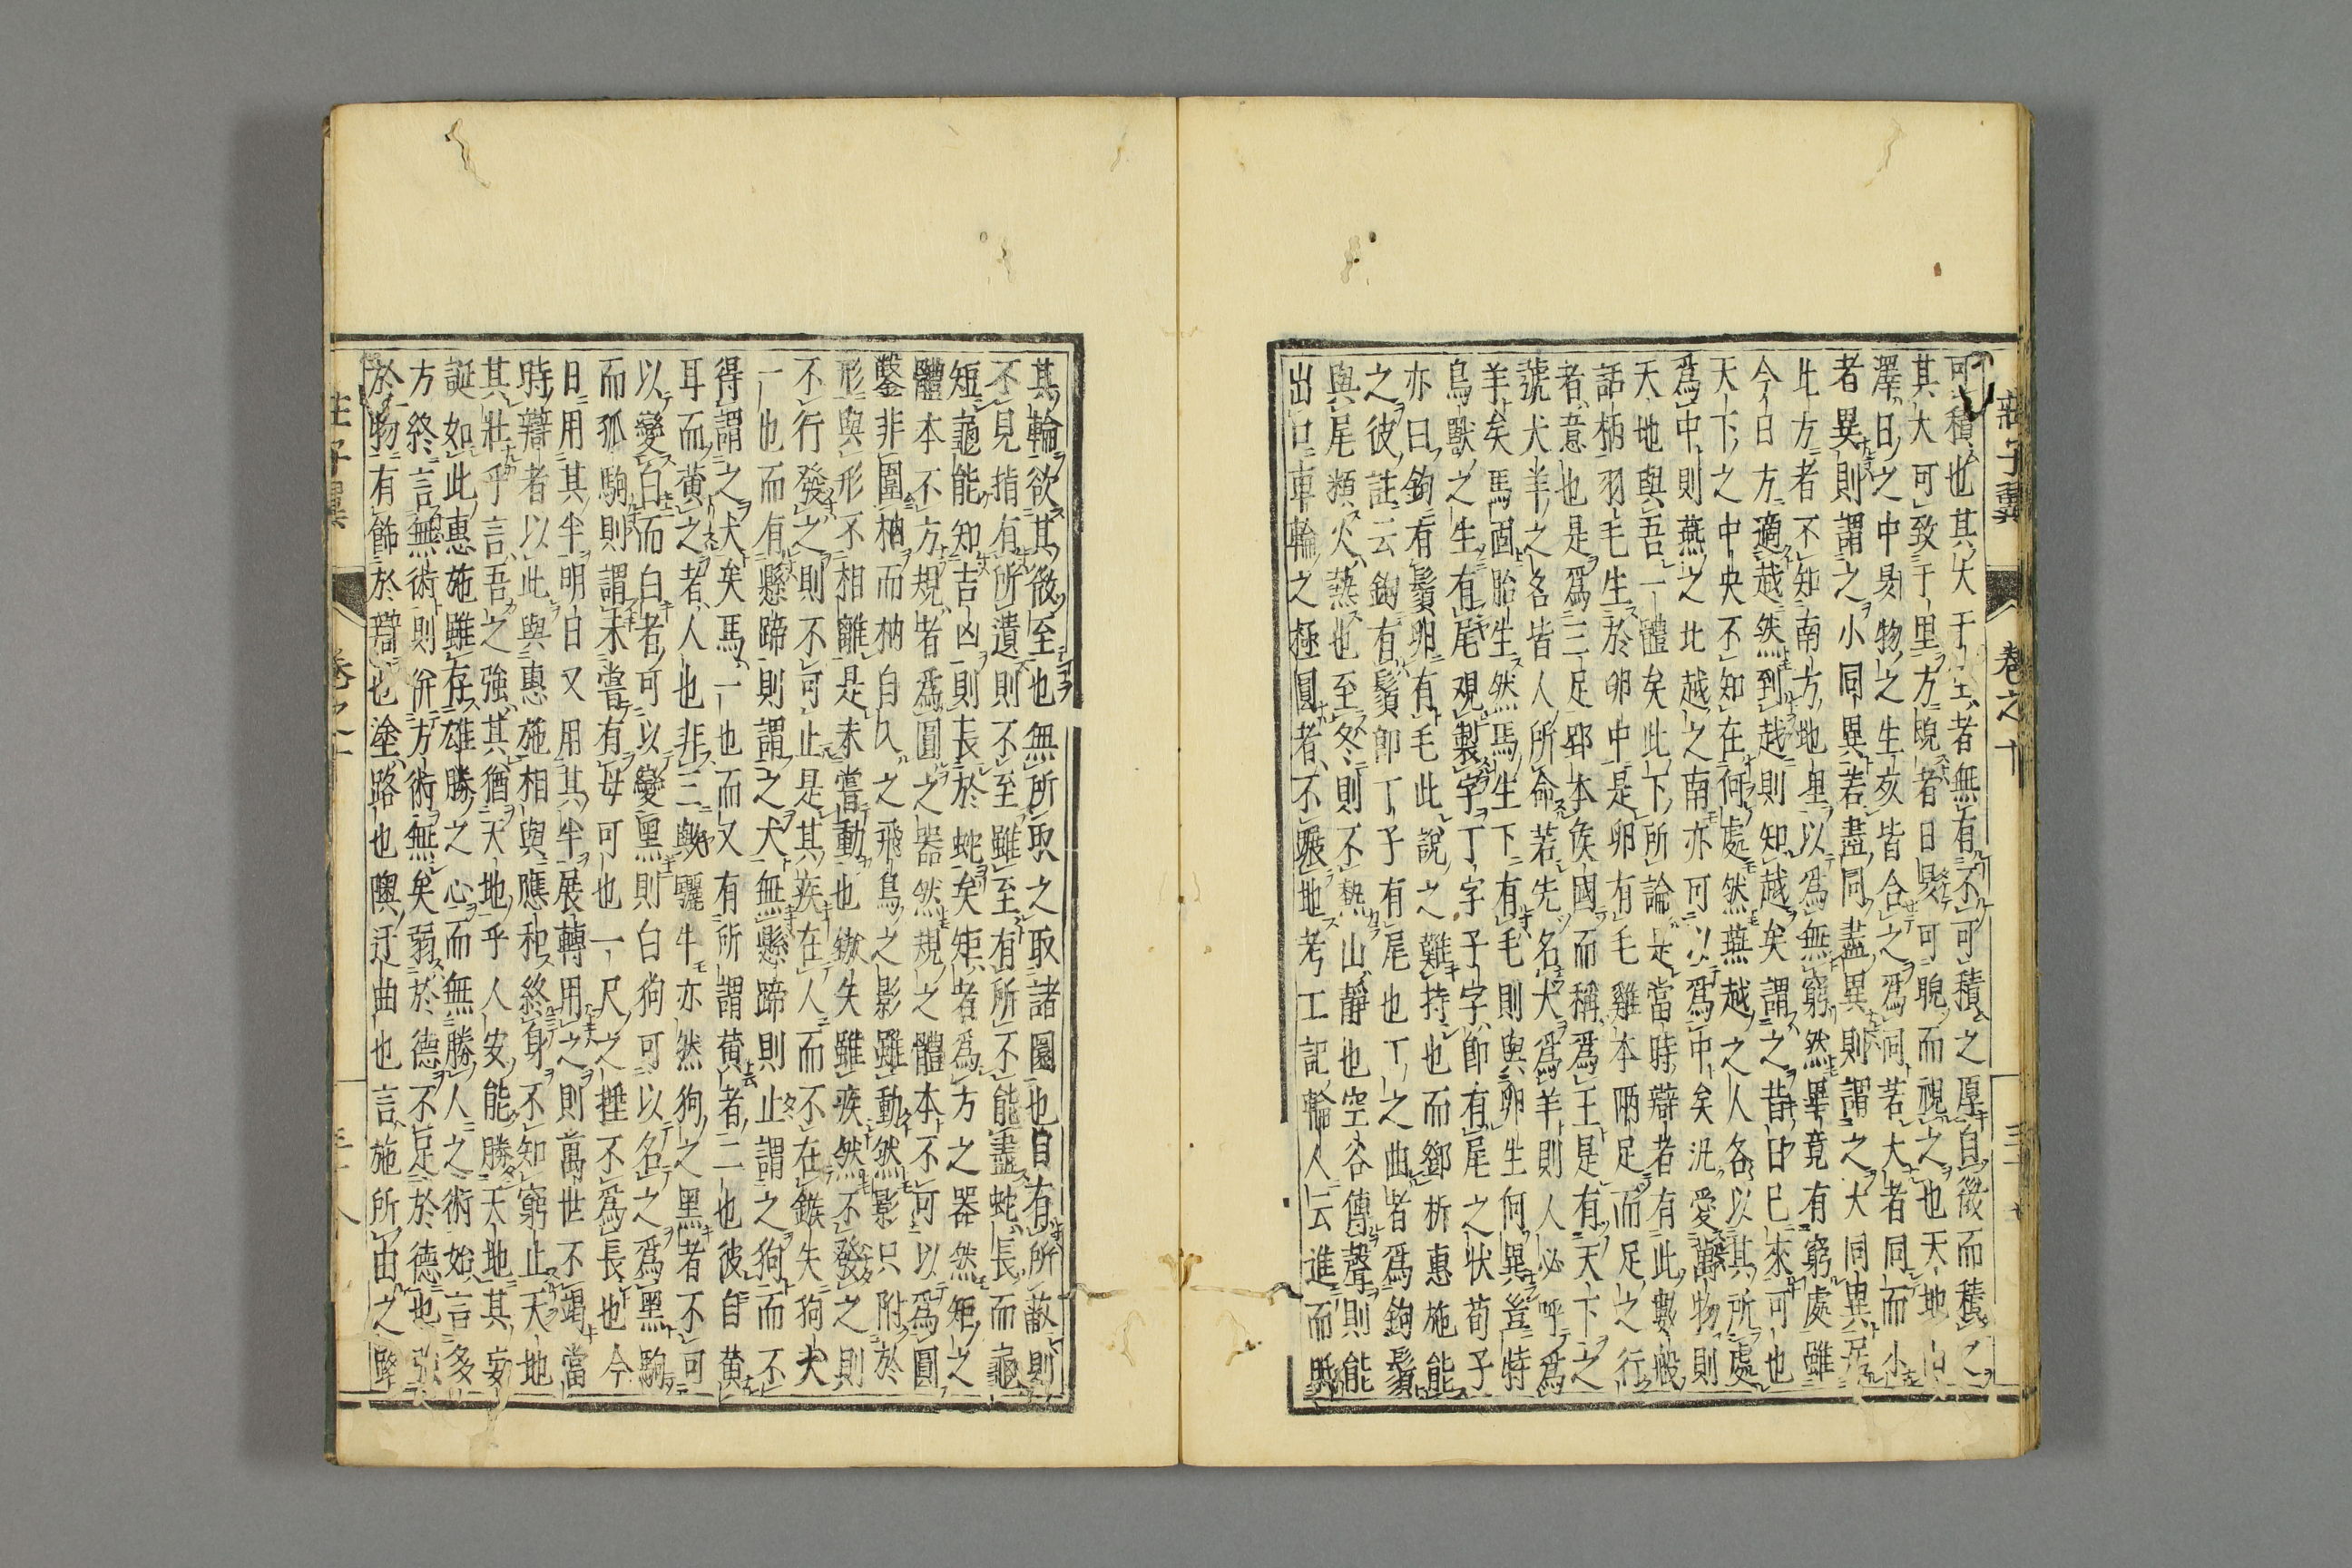 莊子翼 卷之十
可積也其大千里者無有不可積之厚自微而積之
其大可致千里方睨者日昃可睨而視之也天地山
澤日之中昃物之生亥皆合之爲同若大者同而小
者異則謂之小同異若盡同盡異則謂之大同異居
北方者不知南方地里以爲無窮然畢竟有窮處雖
今日方適越然到越則知越矣謂之昔日已來可也
天下之中央不知在何處然燕越之人各以其所處
爲中則燕之北越之南亦可以爲中矣汎愛萬物則
天地與吾一體矣此下所論是當時辯者有此數般
話柄羽毛生於卵中是卵有毛雞本兩足而足之行
者意也是爲三足郢本侯國而稱爲王是有天下之
號犬羊之名皆人所命若先名犬爲羊則人必呼爲
羊矣馬固胎生然馬生下有毛則與卵生何異豈特
鳥獸之生有尾觀製字丁字子字卽有尾之狀荀子
亦曰鉤有鬚卵有毛此說之難持也而鄧析惠施能
之彼註云鉤有鬚卽丁子有尾也丁之曲者爲鉤鬚
與尾類火熱也至冬則不熱山靜也空谷傳聲則能
出口車輪之極圓者不輾地考工記輪人云進而眡
其輪欲其微至也無所取之取諸圜也目有所蔽則
不見指有所遺則不至雖至有所不能盡蛇長而龜
短龜能知吉凶則長於蛇矣矩者爲方之器然矩之
體本不方規者爲圓之器然規之體本不可以爲圓
鑿非圍枘而枘自入之飛鳥之影雖動然影只附於
形與形不相離是未嘗動也鏃矢雖疾然不發之則
不行發之則不可止是其疾在人而不在鏃矢狗犬
一也而有懸蹄則謂之犬無懸蹄則止謂之狗而不
得謂之犬矣馬一也而又有所謂黃者二也彼自黃
耳而黃之者人也非三與驪牛亦然狗之黑者不可
以變白而白者可以變黑則白狗可以名之爲黑駒
而孤駒則謂未嘗有母可也一尺之捶不爲長也今
日用其半明日又用其半展轉用之則萬世不竭當
時辯者以此與惠施相與應和終身不知窮止天地
其壯乎言吾之強其猶天地乎人安能勝天地其妄
誕如此惠施雖存雄勝之心而無勝人之術始言多
方終言無術則併方術無矣弱於德不足於德也強
於物有飾於辯也塗路也隩迂曲也言施所由之路